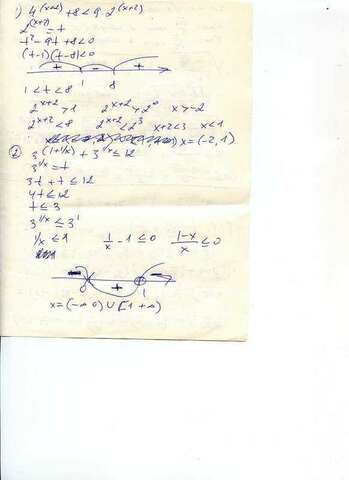 1) 4^(x+2) + 8 < 9·2^(x+2)
2^(x+2) = t
t² - 9t + 8 < 0
(t-1)(t-8) < 0
+ - +
1 8
1 < t < 8
2^x+2 > 1 2^x+2 > 2^0 x > -2
2^x+2 < 8 2^x+2 < 2^3 x+2 < 3 x < 1
x = (-2, 1)
2) 3^(1+1/x) + 3^1/x ≤ 12
3^1/x = t
3t + t ≤ 12
4t ≤ 12
t ≤ 3
3^1/x ≤ 3^1
1/x ≤ 1 1/x - 1 ≤ 0 1-x/x ≤ 0
- + -
0 1
x = (-∞ 0) ∪ [1 +∞)